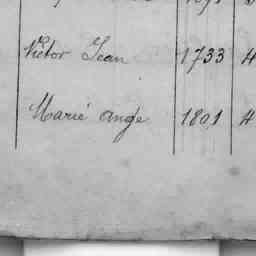 Victor Jean 1733 4
Marié Ange 1801 4